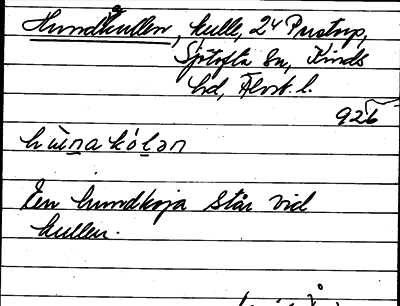 Hundkullen, kulle, 24 Pustorp,
Sjötofta sn, Kinds
hd, Älvsb. l.
926
hùna kólən
En hundkoja står vid
kullen.